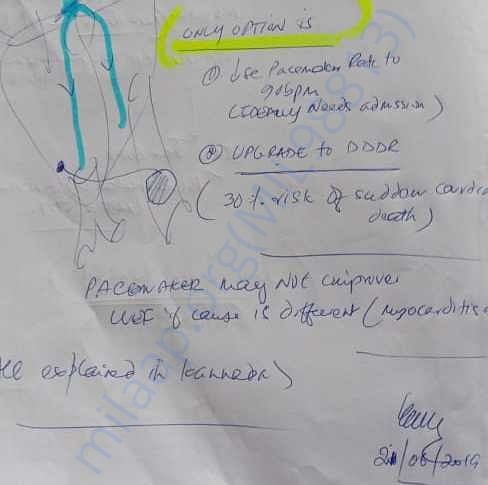 ONLY OPTION is
① Use Pacemaker Rate to
90bpm
(IDEALLY Needs admission)
② UPGRADE to DDDR
(30% risk of sudden cardia
death)
PACEMAKER may NOT improve
if cause is different (myocarditis
explained in kannada)
21/06/2019
milaap.org(MIL198813)